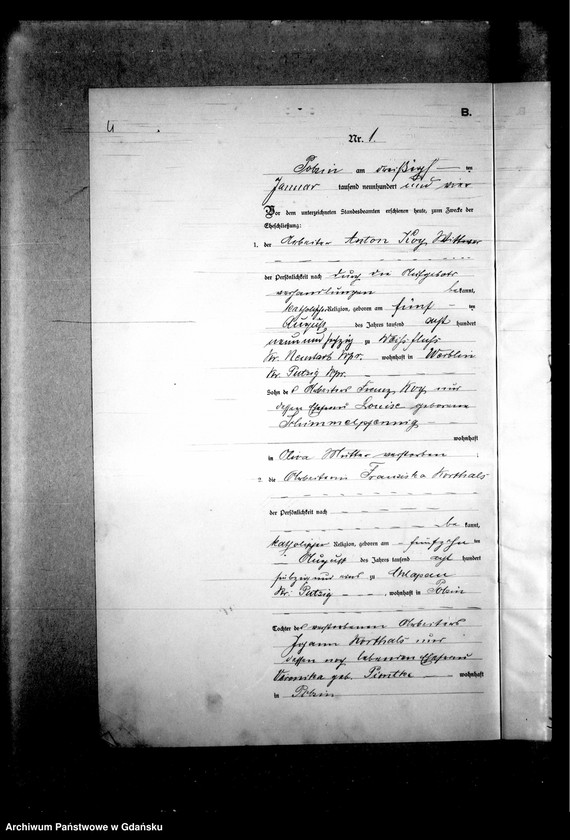 B.
Nr. 1.
Polzin am dreißigsten
Januar tausend neunhundert und vier
Vor dem unterzeichneten Standesbeamten erschienen heute, zum Zwecke der
Eheschließung:
1. der Arbeiter Anton Koy, Wittwer
der Persönlichkeit nach durch die Aufgebots
verhandlungen bekannt,
katholischer Religion, geboren am fünf ten
August des Jahres tausend acht hundert
neunundsechzig zu
Kr. Neustadt Wpr. wohnhaft in Werblin
Kr. Putzig Wpr.
Sohn des Arbeiters Franz Koy und
dessen Ehefrau Louise geborene
Schimmelpfennig
wohnhaft
in Oliva Mutter verstorben
2. die Arbeiterin Franziska Korthals
der Persönlichkeit nach
be kannt,
katholischer Religion, geboren am fünfzehn ten
August des Jahres tausend acht hundert
siebzig und zu Chlapau
Kr. Putzig, wohnhaft in Polzin
Tochter des verstorbenen Arbeiters
Johann Korthals und
dessen noch lebenden Ehefrau
Veronika geb. wohnhaft
in Polzin
Archiwum Państwowe w Gdańsku